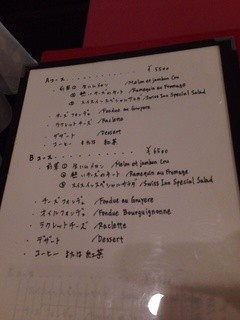 Aコース . . . . . . . . . . . ¥5500
前菜 ① 生ハムメロン / Melon et jambon Cru
② 熱いチーズのタルト / Ramequin au Fromage
③ スイスインスペシャルサラダ / Swiss Inn Special Salad
・ チーズフォンデュ / Fondue au Gruyere
・ ラクレットチーズ / Raclette
・ デザート / Dessert
・ コーヒー または 紅茶
Bコース . . . . . . . . . . . ¥6500
・ 前菜 ① 生ハムメロン / Melon et jambon Cru
② 熱いチーズのタルト / Ramequin au Fromage
③ スイスインスペシャルサラダ / Swiss Inn Special Salad
・ チーズフォンデュ / Fondue au Gruyere
・ オイルフォンデュ / Fondue Bourguignonne
・ ラクレットチーズ / Raclette
・ デザート / Dessert
・ コーヒー または 紅茶